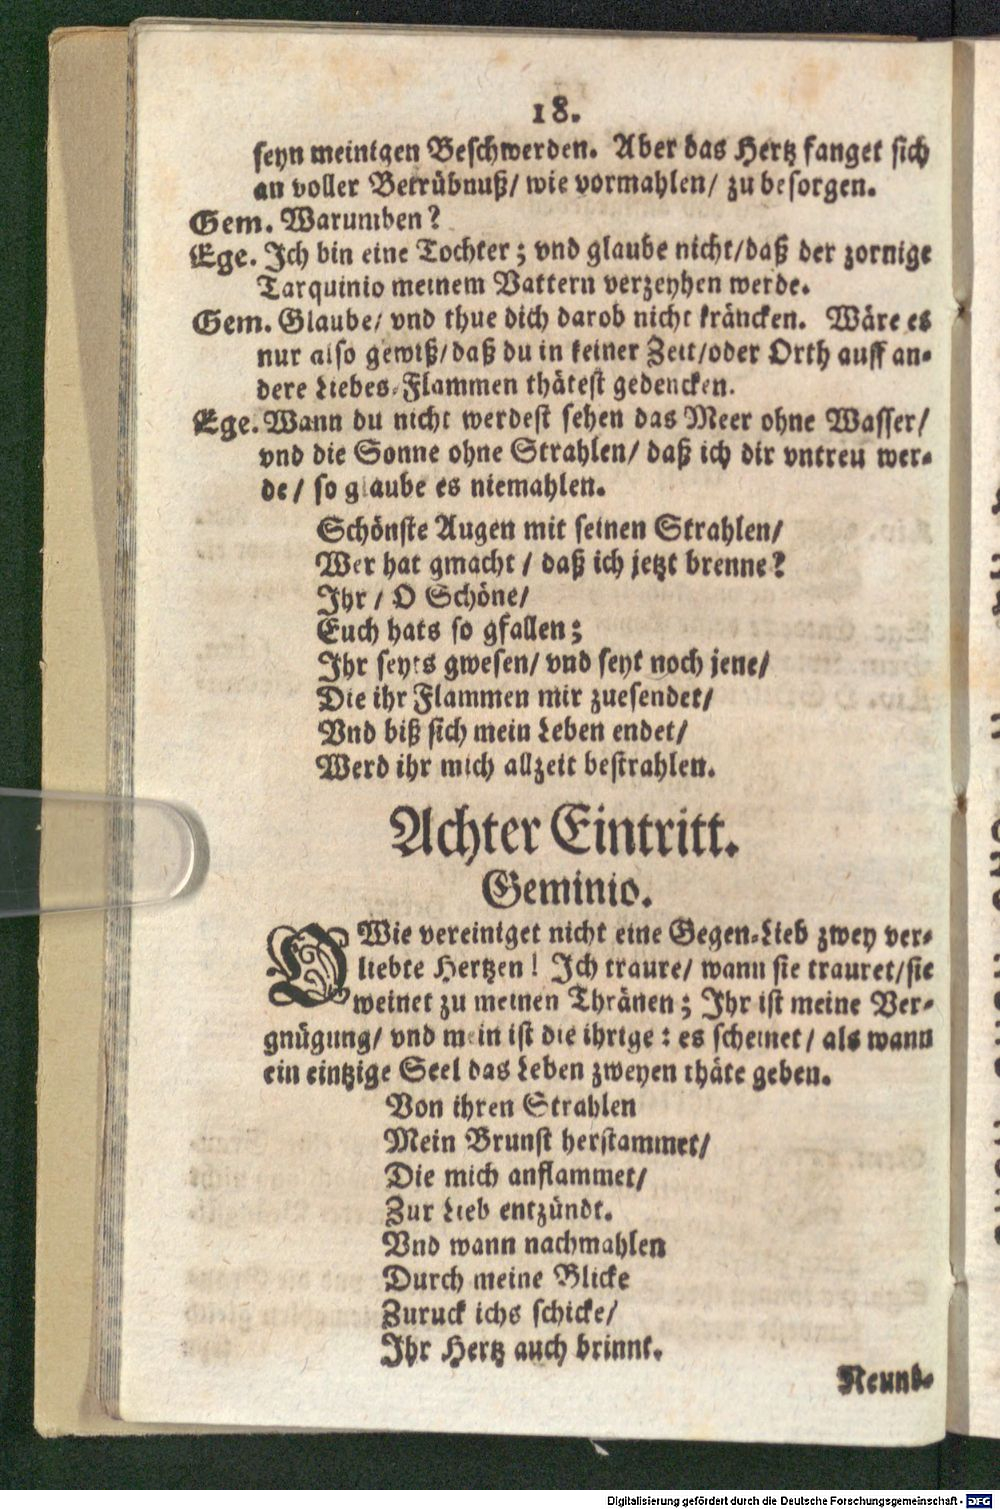 18.
seyn meinigen Beschwerden. Aber das Hertz fanget sich
an voller Betrübnuß/ wie vormahlen/ zu besorgen.
Gem. Warumben?
Ege. Ich bin eine Tochter; vnd glaube nicht/daß der zornige
Tarquinio meinem Vattern verzeyhen werde.
Gem. Glaube/ vnd thue dich darob nicht kräncken. Wäre es
nur also gewiß/daß du in keiner Zeit/oder Orth auff an-
dere Liebes-Flammen thätest gedencken.
Ege. Wann du nicht werdest sehen das Meer ohne Wasser/
vnd die Sonne ohne Strahlen/ daß ich dir vntreu wer-
de/ so glaube es niemahlen.
Schönste Augen mit seinen Strahlen/
Wer hat gmacht / daß ich jetzt brenne?
Ihr / O Schöne/
Euch hats so gfallen;
Ihr seyts gwesen/ vnd seyt noch jene/
Die ihr Flammen mir zuesendet/
Vnd biß sich mein Leben endet/
Werd ihr mich allzeit bestrahlen.
Achter Eintritt.
Geminio.
O Wie vereiniget nicht eine Gegen-Lieb zwey ver-
liebte Hertzen! Ich traure/ wann sie trauret/sie
weinet zu meinen Thränen; Ihr ist meine Ver-
gnügung/ vnd mein ist die ihrige: es scheinet/ als wann
ein eintzige Seel das Leben zweyen thäte geben.
Von ihren Strahlen
Mein Brunst herstammet/
Die mich anflammet/
Zur Lieb entzündt.
Vnd wann nachmahlen
Durch meine Blicke
Zuruck ichs schicke/
Ihr Hertz auch brinnt.
Neund-
Digitalisierung gefördert durch die Deutsche Forschungsgemeinschaft - DFG